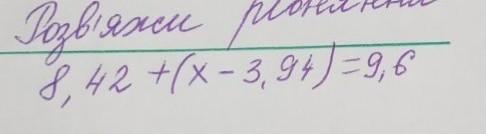 Розв'яжи рівняння
8,42 + (x - 3,94) = 9,6